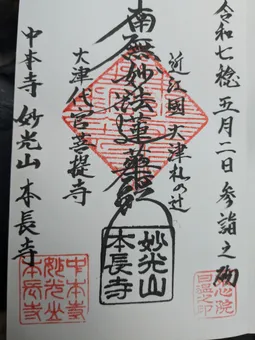 令和七稔五月二日参詣之砌
近江國大津札の辻
南無妙法蓮華経
大津代官菩提寺
中本寺 妙光山 本長寺
妙光山
本長寺
中本寺
妙光山
本長寺